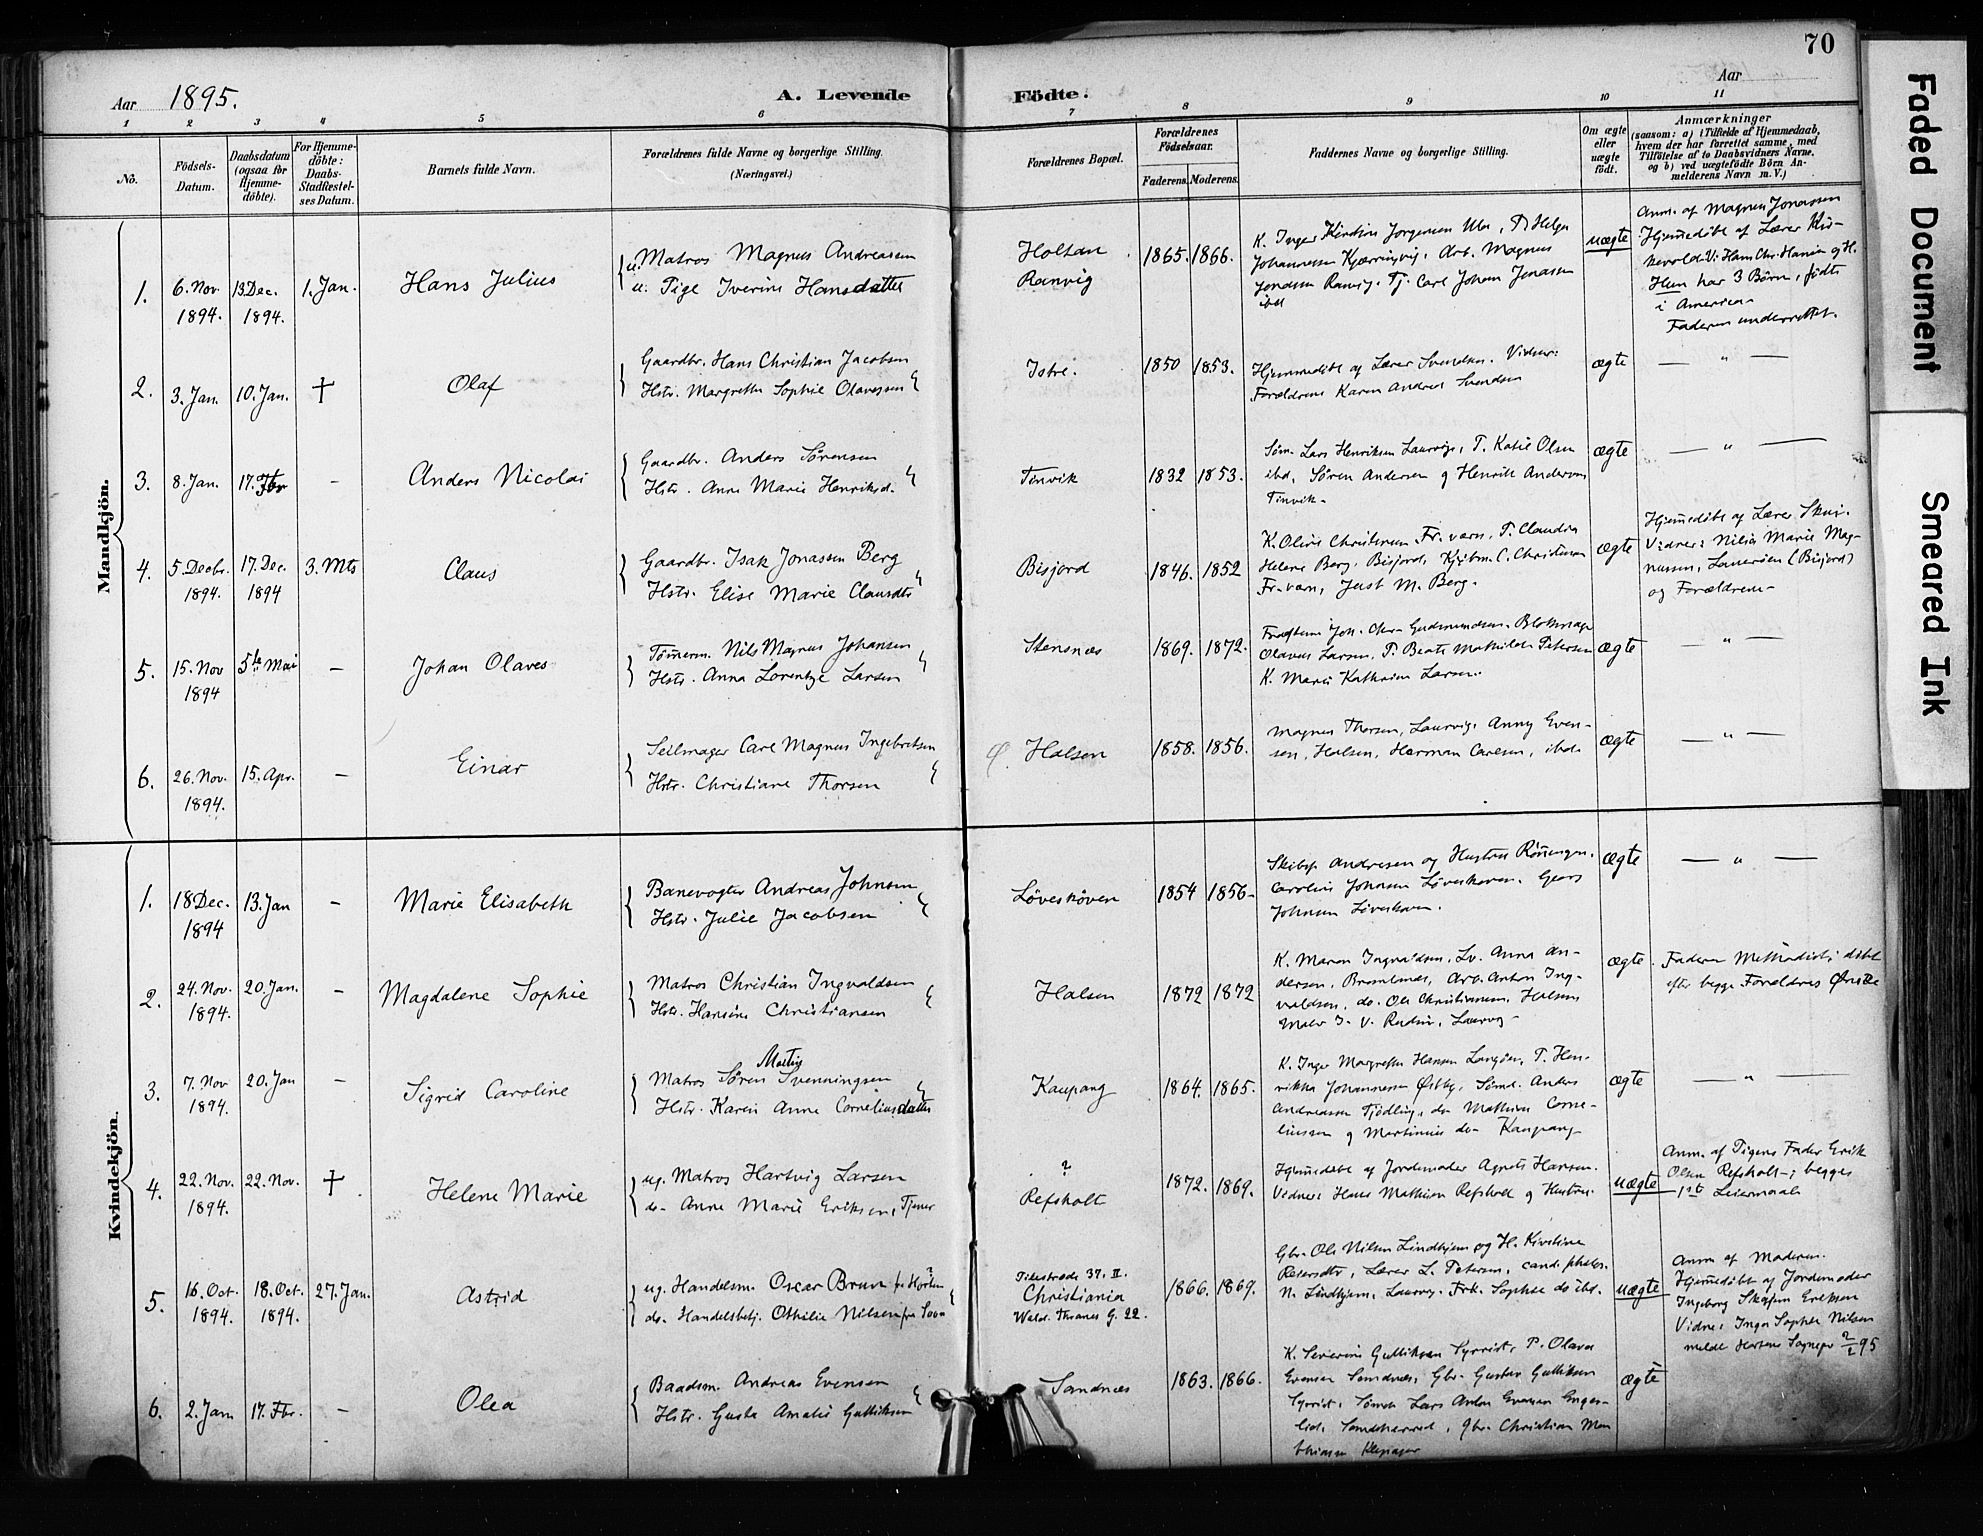 70
Faded Document
Smeared Ink
Aar 1895.
A. Levende Födte.
Aar
1 2 3 4 5 6 7 8 9 10 11
No.
Födsels-
Datum.
Daabsdatum
(ogsaa for
Hjemme-
döbte).
For Hjemme-
döbte:
Daabs-
Stadfæstel-
ses Datum.
Barnets fulde Navn.
Forældrenes fulde Navne og borgerlige Stilling.
(Næringsvei.)
Forældrenes Bopæl.
Forældrenes
Födselsaar.
Faderens. Moderens.
Faddernes Navne og borgerlige Stilling.
Om ægte
eller
uægte
födt.
Anmærkninger
(saasom: a) i Tilfælde af Hjemmedaab,
hvem der har forrettet samme, med
Tilföielse af to Daabsvidners Navne,
og b) ved uægtefödte Börn An-
melderens Navn m. V.)
Mandkjön.
1. 6. Nov 1894. 13. Dec. 1894. 1. Jan. Hans Julius
u. Matros Magnus Andreassen
u. Pige Iverine Hansdatter
Holtan
Ranvig
1865. 1866.
K. Inger Jorgensen P. Helga
Johannessen Kjærringvig, Arb. Magnus
Jonassen Ranvig. Tj. Carl Johan Jonassen
ibd
uægte
Anm. af Magnus Jonassen
Hjemmedöbt af Lærer
Hun har 3 Börn, födte
i America-
Faderen underrettet.
2. 3. Jan. 10. Jan. † Olaf
Gaardbr. Hans Christian Jacobsen
Hstr. Margrethe Sophie Olavesen
Istre. 1850 1853.
Hjemmedöbt af Lærer Svendsen. Vidner:
Forældrene Karen Andrea Svendsen
ægte — " —
3. 8. Jan. 17. Fbr - Anders Nicolai
Gaardbr. Anders Sörensen
Hstr. Anne Marie Henriksd.
Tinvik 1832 1853.
Söm. Lars Henriksen Laurvig, P. Katie Olsen
ibd, Sören Andersen g Henrik Andersen
Tinvik-
ægte — " —
4. 5. Decbr. 1894. 17. Dec. 1894 3. Mts Claus
Gaardbr. Isak Jonassen Berg
Hstr. Elise Marie Clausdtr
Bisjord 1846. 1852
K. Oline Christensen Fr. værn, P. Claudia
Helene Berg, Bisjord, Kjöbm. C. Christensen
Fr.værn, Just M. Berg.
ægte
Hjemedöbt af Lærer
Vidner: Nilia Marie Mag-
nussen, (Bisjord)
og Forældrene-
5. 15. Nov 1894 5te Mai - Johan Olaves
Tömerm. Nils Magnus Johansen
Hstr. Anna Lorentze Larsen
Stensnæs 1869. 1872.
Joh. Chr. Gudmundsen.
Olaves Larsen, P. Beate Mathilde Petersen
K. Marie Kathrine Larsen.
ægte — " —
6. 26. Nov. 1894. 15. Apr. - Einar
Seilmager Carl Magnus Ingebretsen
Hstr. Christiane Thorsen
Halsen 1858. 1856.
Magnus Thorsen, Laurvig, Anny Even-
sen, Halsen, Herman Carlsen, ibd.
ægte — " —
Kvindekjön.
1. 18 Dec. 1894 13. Jan - Marie Elisabeth
Banevogter Andreas Johnsen
Hstr. Julie Jacobsen
Löveskoven 1854 1856-
Skibsf. Andresen og Hustru Rönningen.
Caroline Johnsen Löveskoven. Georg
Johnsen Löveskoven.
ægte — " —
2. 24. Nov. 1894. 20. Jan. - Magdalene Sophie
Matros Christian Ingvaldsen
Hstr. Hansine Christiansen
Halsen 1872 1872
K. Maren Ingvaldsen, Lv. Anna An-
dersen, Arb. Anton Ing-
valdsen, do. Ole Christiansen, Halsen,
Laurvig-
ægte.
Faderen Methodist; döbt
efter begge Forældres Önske
3. 7. Nov 1894. 20. Jan - Sigrid Caroline
Matros Sören Mathis Svenningsen
Hstr. Karen Anne Corneliusdatter
Kaupang 1864. 1865.
K. Inger Margrethe Hansen Langöen, P. Hen-
rikka Johannessen Östby, Sömd. Anders
Andreassen Tjödling, do Mathias Corne-
liussen g Martinius do- Kaupang-
ægte — " —
4. 22. Nov. 1894. 22. Nov. † Helene Marie
ug. Matros Hartvig Larsen
do- Anne Marie Eriksen, Tjener
?
Refsholt
1872. 1869.
Hjemedöbt af Jordemoder Agnete Hansen.
Vidner: Hans Mathisen Refsholt g Hustru.
uægte
Anm. af Pigens Fader Erik
Olsen Refsholt-; begges
1ste Leiermaal
5. 16. Oct. 1894. 18. Oct. 1894. 27. Jan. Astrid
ug. Handelsm. Oscar Bruun fr. Horten ?
do. Handelsbetj. Othilie Nilsen
Pilestræde 37. II.
Christiania
Wald. Thranes G. 22.
1866. 1869.
Gbr. Ole Nilsen Lindhjem og H. Kirstine
Lærer L. Petersen, cand. philos.
N. Lindhjem, Laurvig. Frk. Sophie do ibd.
uægte
Anm af Moderen.
Hjemedöbt af Jordemoder
Ingeborg Eriksen
Vidne: Inger Sophie Nilsen
meldt Hortens Sognepr 2/2 95
6. 2. Jan 17. Fbr. - Olea
Baadsm. Andreas Evensen
Hstr. Gusta Amalie Gulliksen
Sandnæs 1863. 1866.
K. Severine Gulliksen Syrrist, P. Olava
Evensen Sandnæs, Gbr. Gustav Gulliksen
Syrrist, Sömd. Lars Anton Evensen Enges-
lid, Sandeherred, gbr. Christian Ma-
thiassen
ægte